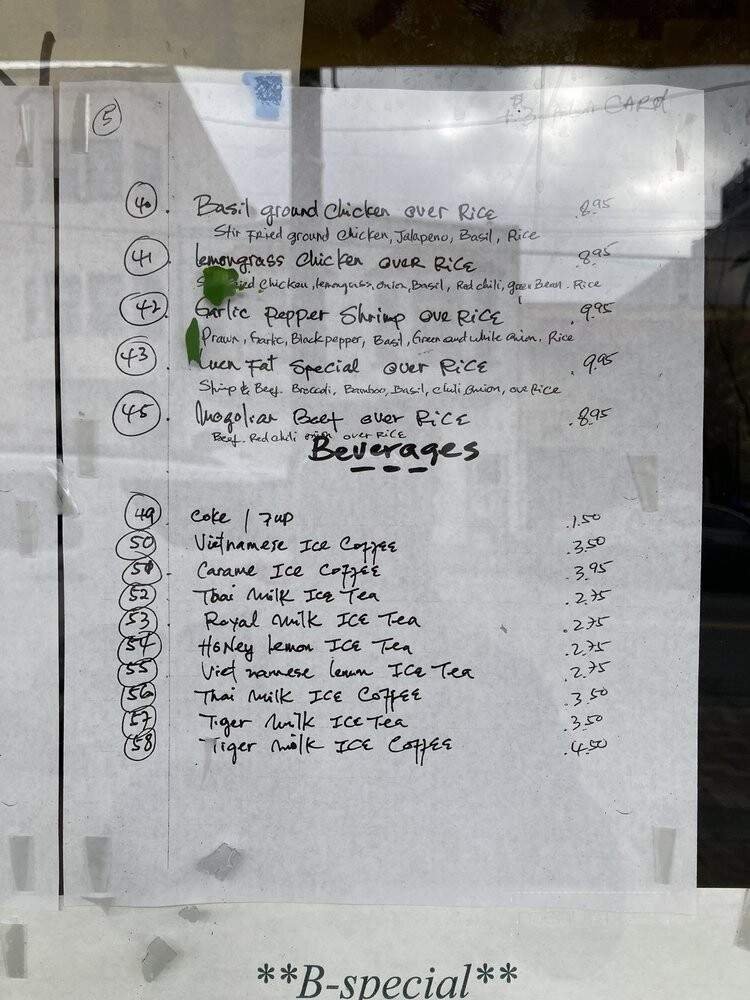 5
CARD
40. Basil ground Chicken over Rice .8.95
Stir Fried ground Chicken, Jalapeno, Basil, Rice
41. lemongrass Chicken over Rice .8.95
Chicken, lemongrass, onion, Basil, Red chili, green Bean. Rice
42. Garlic pepper Shrimp ove Rice .9.95
Prawn, Garlic, Black pepper, Basil, Green and white onion. Rice
43. Luen Fat Special over Rice .9.95
Shrimp & Beef. Broccoli, Bamboo, Basil, chili onion, ove Rice
45. Mogolian Beef over Rice .8.95
Beef. Red chili onion over Rice
Beverages
49. Coke / 7up .1.50
50. Vietnamese Ice Coffee .3.50
51. Carame Ice Coffee .3.95
52. Thai Milk Ice Tea .2.75
53. Royal Milk ICE Tea .2.75
54. HONey lemon ICE Tea .2.75
55. Viet namese lemon ICE Tea .2.75
56. Thai Milk ICE Coffee .3.50
57. Tiger Milk ICE Tea .3.50
58. Tiger Milk ICE Coffee .4.50
**B-special**